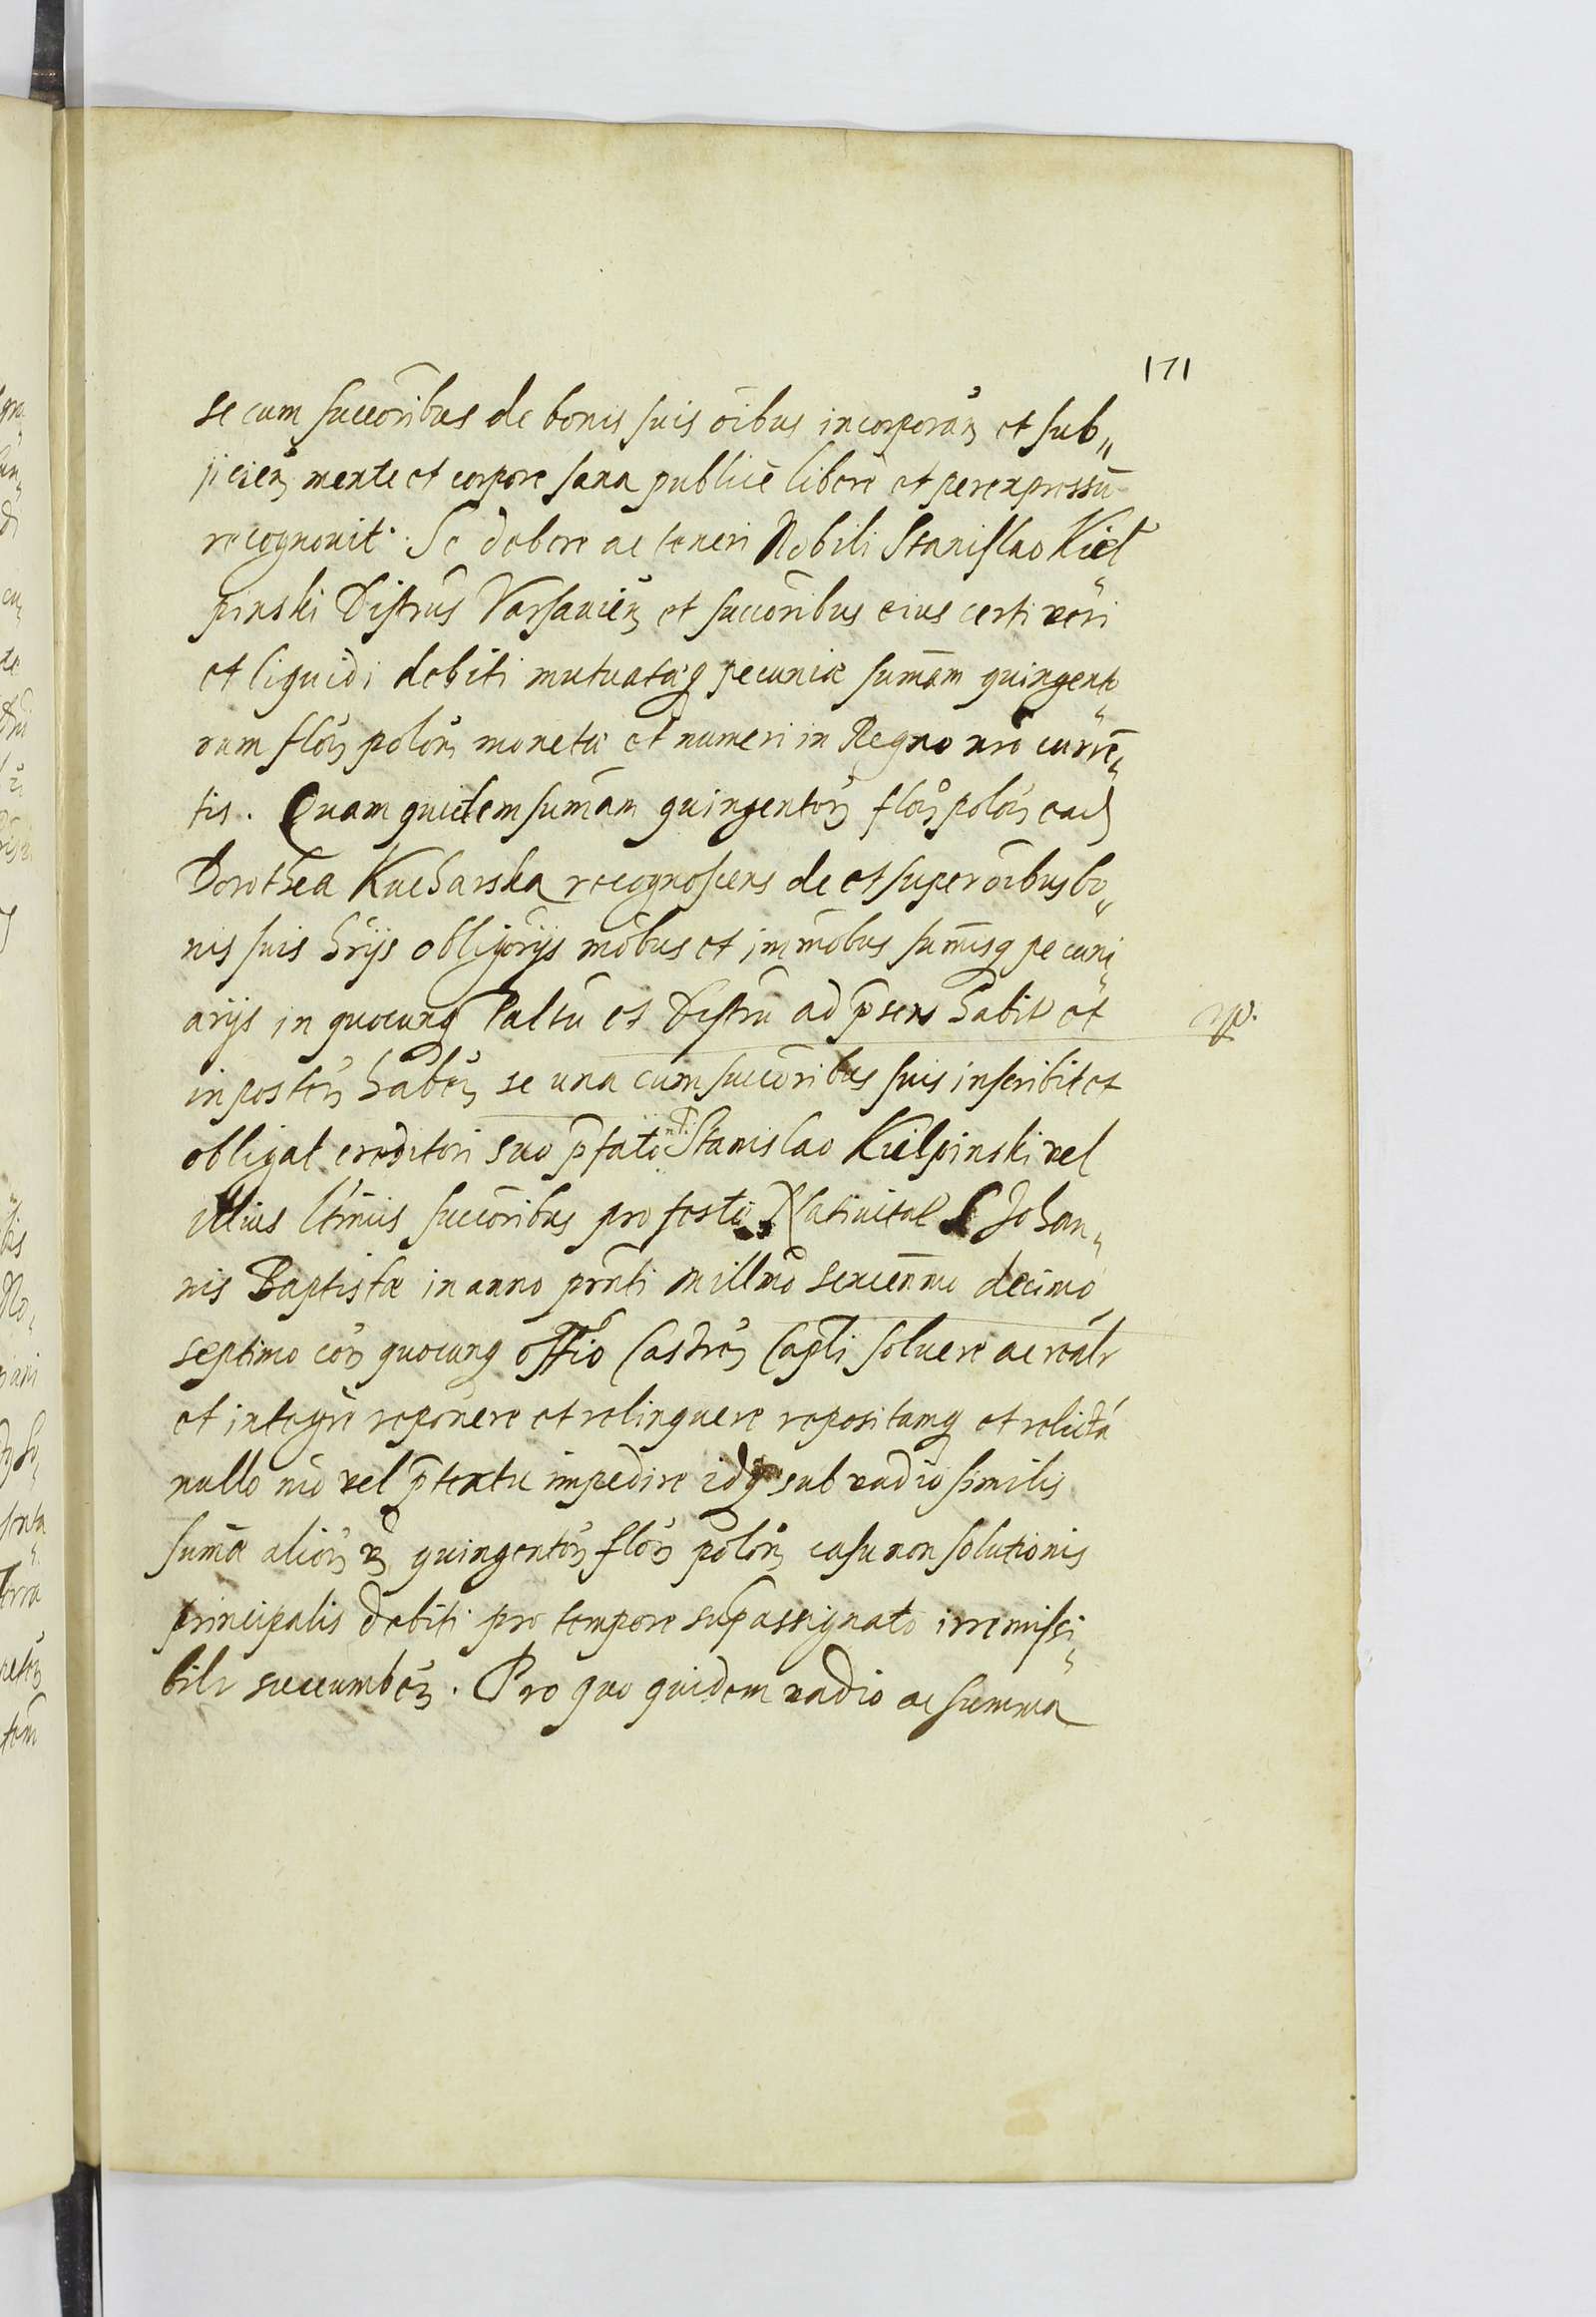 171
se cum succoribus de bonis suis oibus incorporan et sub„
jicien mente et corpore sana publice libere et per expressu
recognovit. Se debere ac teneri Nobili Stanislao Kieł„
pinski Distrus Varsavien et succoribus eius certi veri
et liquidi debiti mutuataq pecuniæ sumam quingento„
rum flor polon moneta et numeri in Regno nro curre„
tis. Quam quidem sumam quingentor flor polon ead
Dorothea Kucharska recognoscens de et super oibus bo„
nis suis hrijs obligorijs mobus et immobus sumisq pecuni„
arijs in quocunq Paltu et Distru ad psens habit et
in poster haben se una cum succoribus suis inscribit et
obligat creditori suo pfato nli Stanislao Kielpinski vel
illius ltimis succoribus pro festo Nativitat S Johan„
nis Baptistæ in anno prnti millmo sexcenmo decimo
septimo cor quocunq offio Castren Capli solvere ac realr
et integre reponere et relinquere repositamq et relicta
nullo mo vel ptextu impedire idq sub vadio similis
suma alior quingentor flor polon casu non solutionis
principalis debiti pro tempore sup assignato irremissi„
bilr succumben. Pro quo quidem vadio ac summa